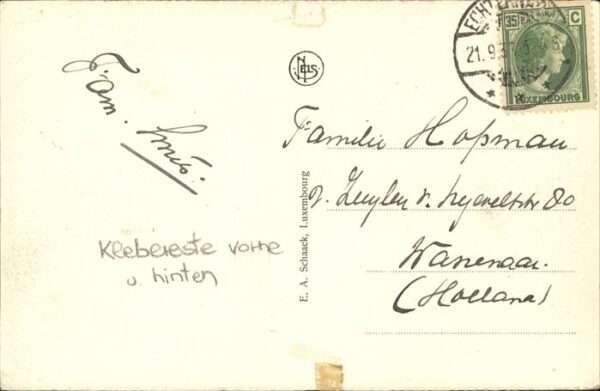 Fam. Smis.
Klebereste vorne
u. hinten
NELS
E. A. Schaack, Luxembourg
ECHTERNACH
21. 9. 3
35 C
LUXEMBOURG
Familie Hopman
v. Zuylen v. Nyeveltstr 80
Wassenaar.
(Holland)